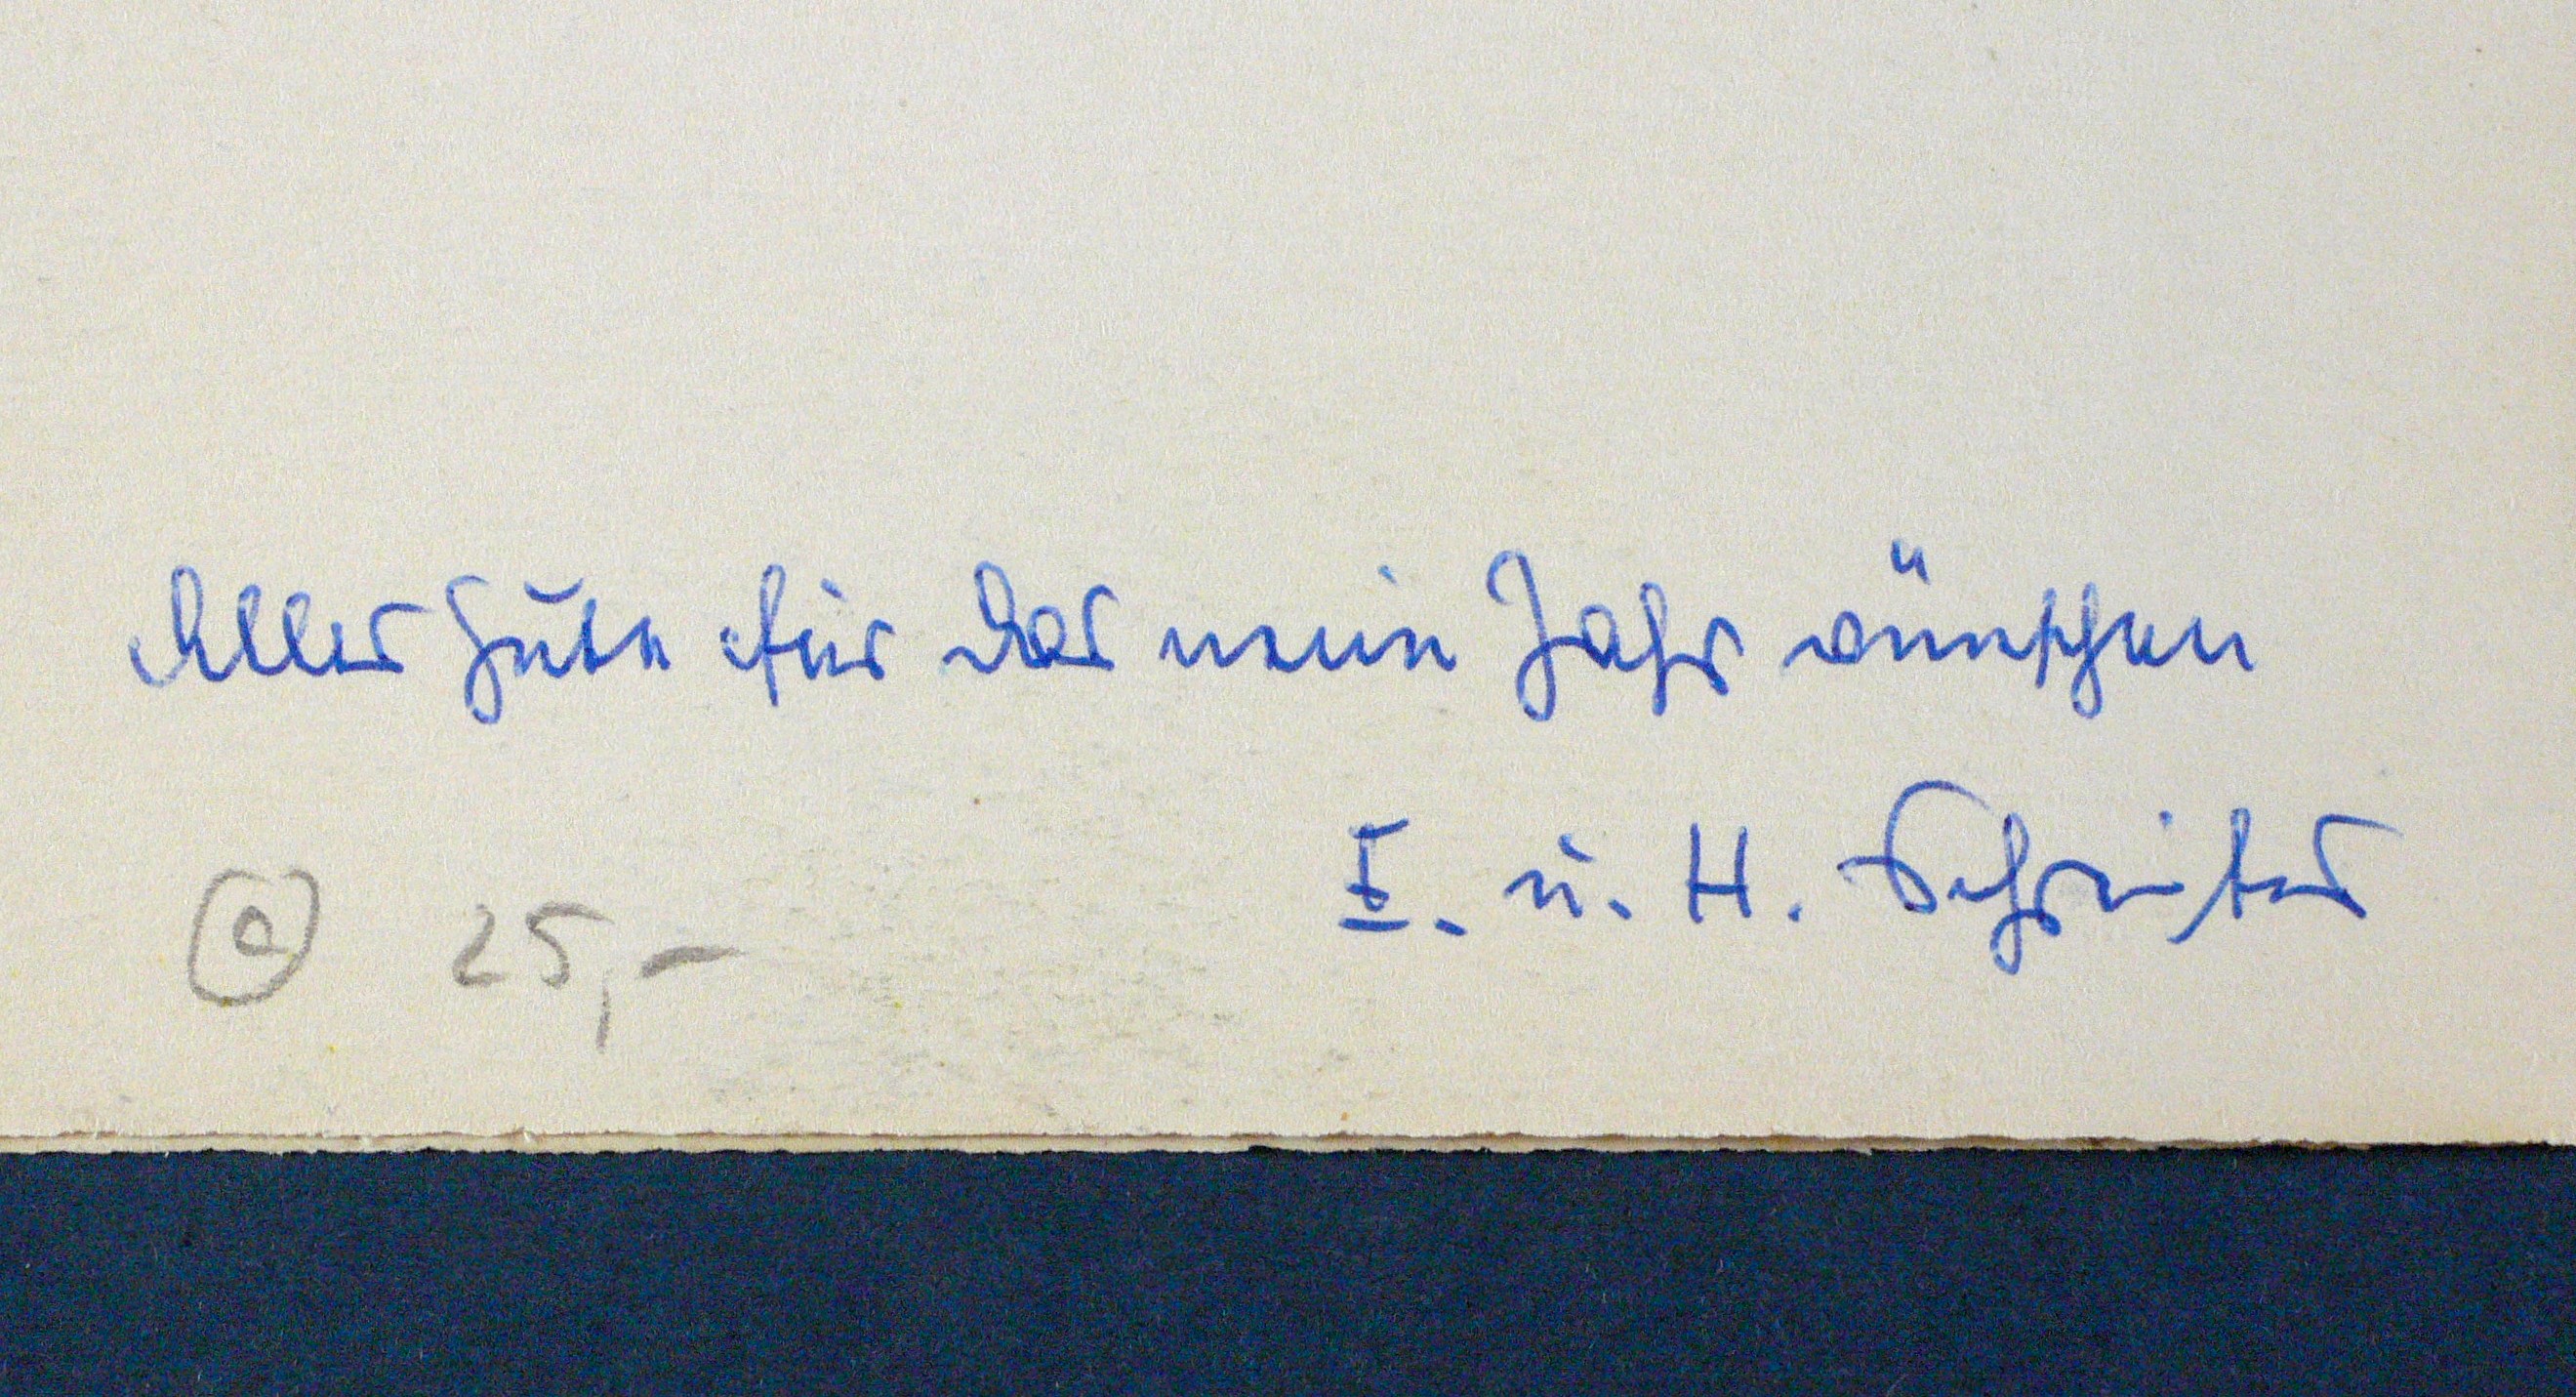 Alles Gute für das neue Jahr wünschen
I. u. H. Schreiter
a 25,-